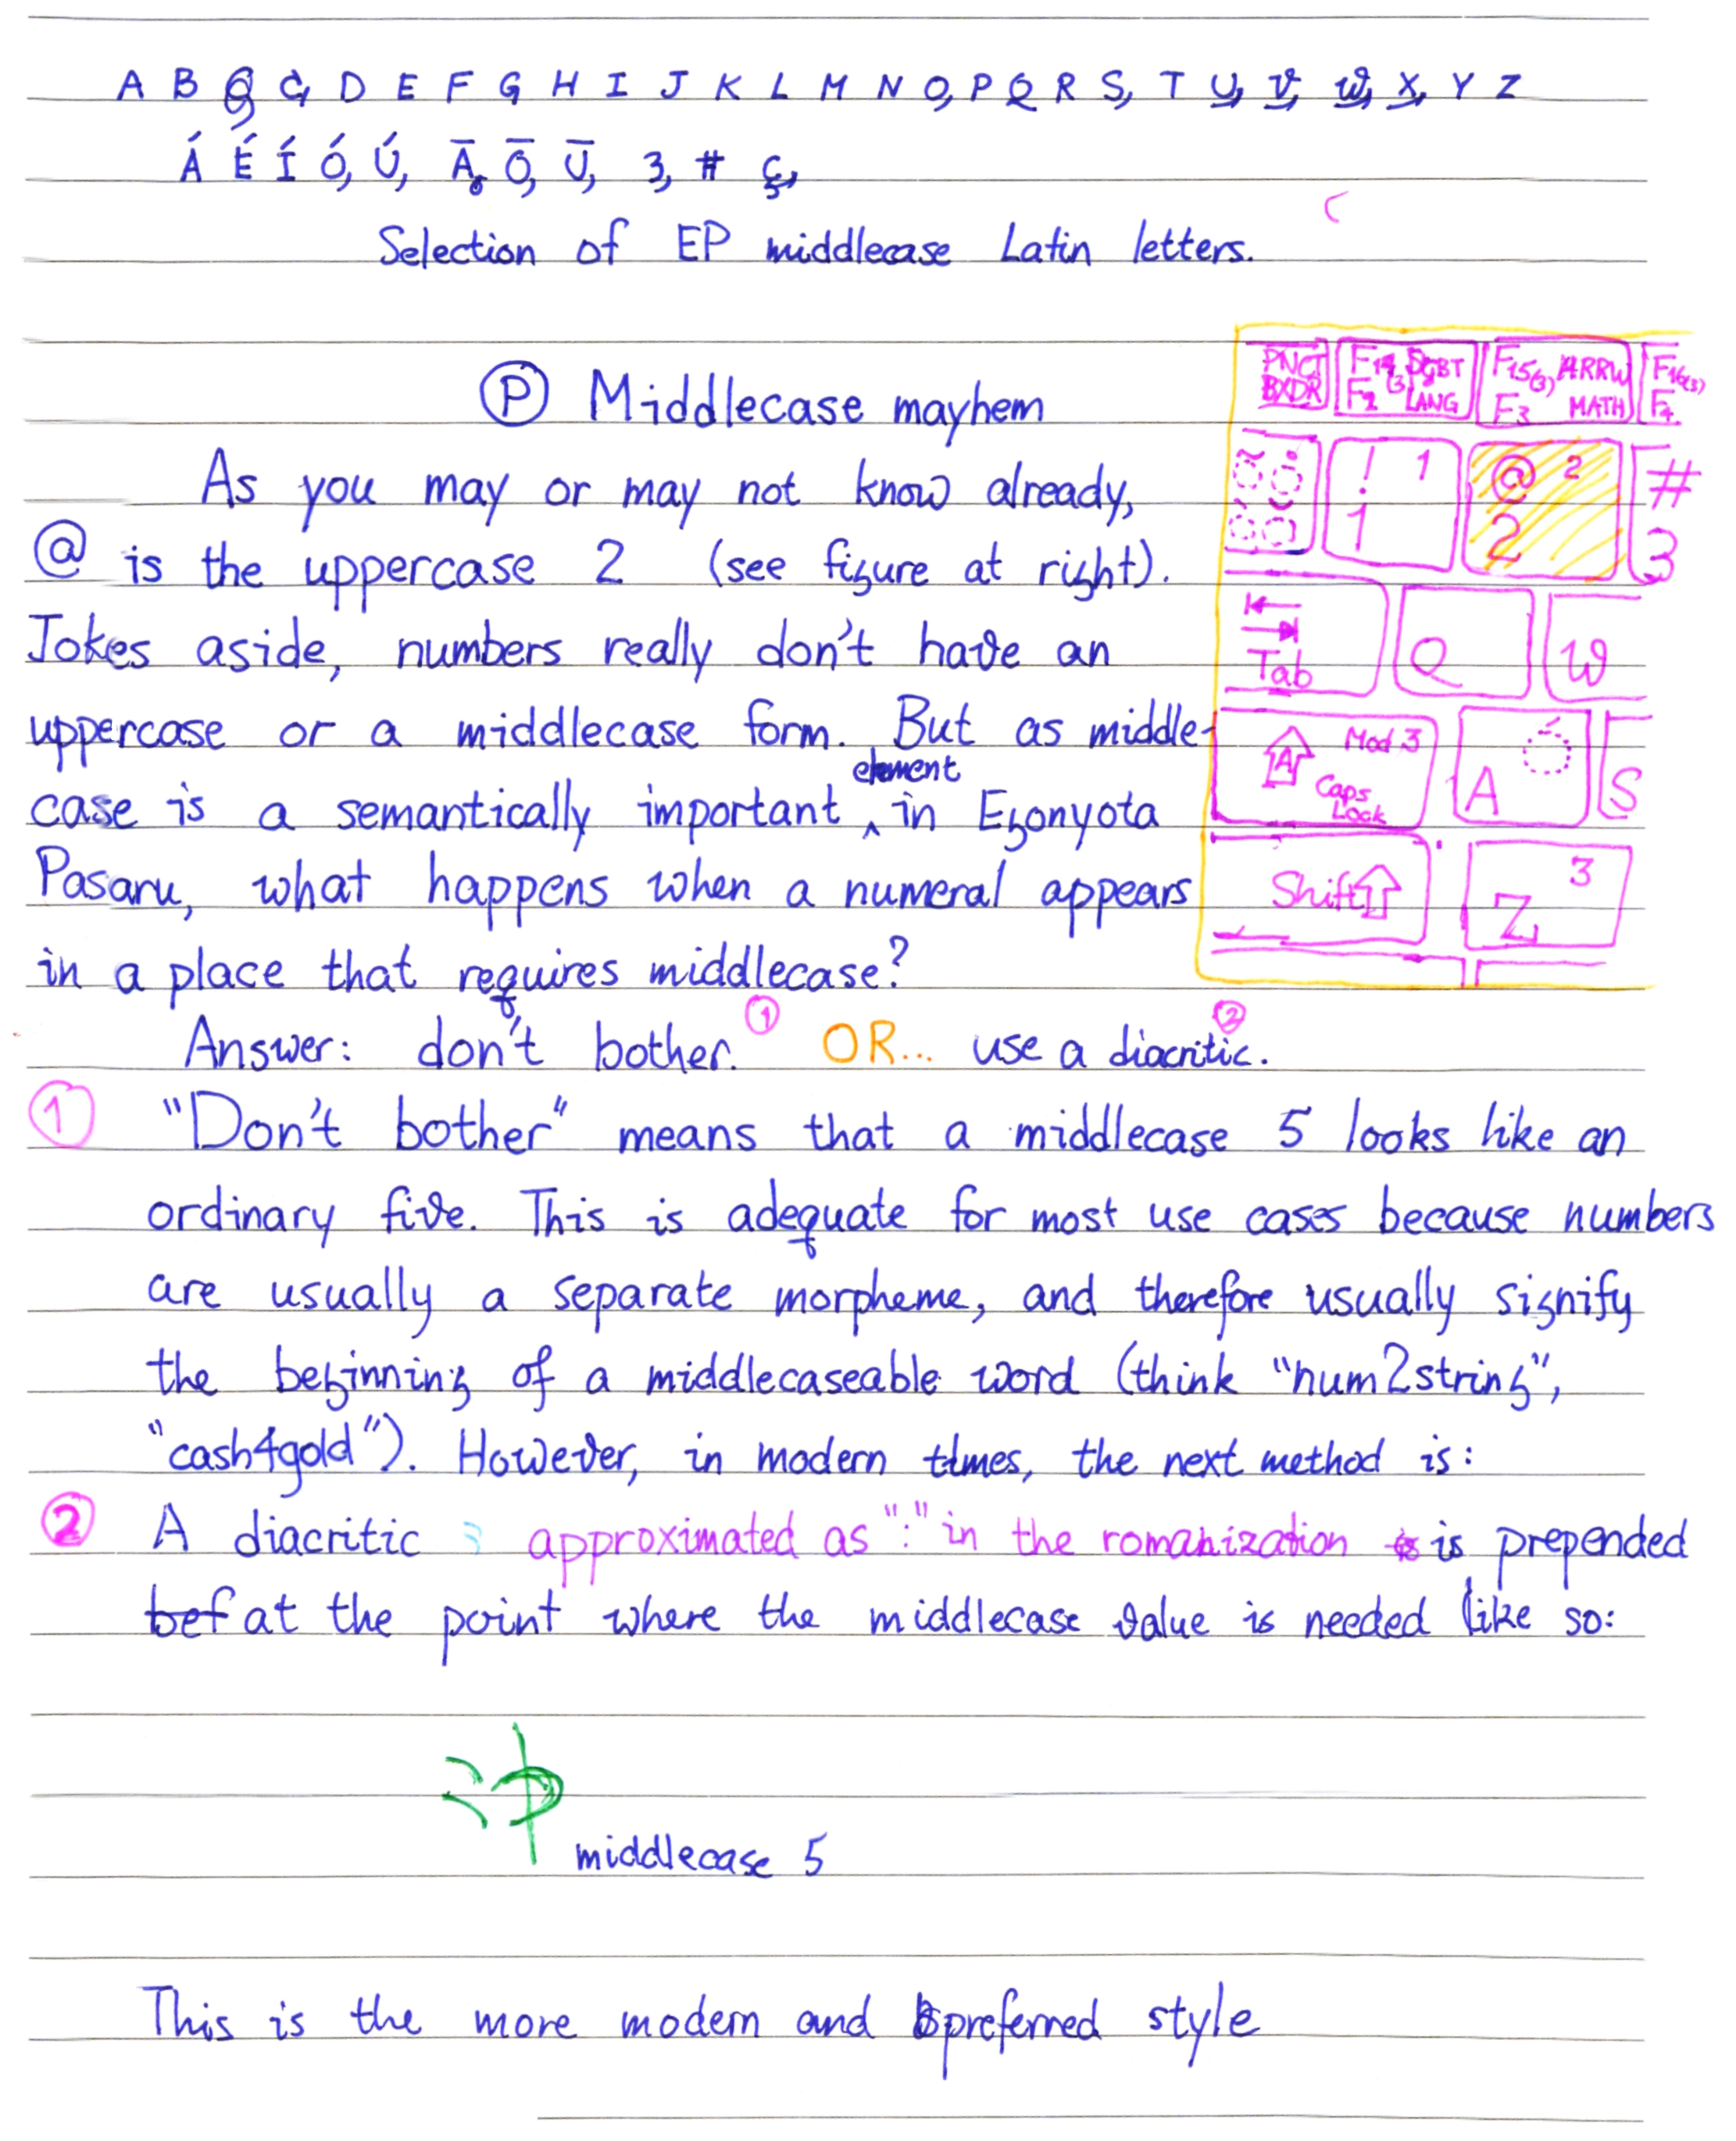 A B C D E F G H I J K L M N O, P Q R S, T U, V, W, X, Y Z
Á É Í Ó, Ú, Ā, Ō, Ū, 3, # Ç,
Selection of EP middlecase Latin letters.
Ⓟ Middlecase mayhem
As you may or may not know already,
@ is the uppercase 2 (see figure at right).
Jokes aside, numbers really don't have an
uppercase or a middlecase form. But as middle-
case is a semantically important ‸element in Egonyota
Pasaru, what happens when a numeral appears
in a place that requires middlecase?
Answer: don't bother.① OR... use a diacritic.②
① "Don't bother" means that a middlecase 5 looks like an
ordinary five. This is adequate for most use cases because numbers
are usually a separate morpheme, and therefore usually signify
the beginning of a middlecaseable word (think "num2string",
"cash4gold"). However, in modern times, the next method is:
② A diacritic approximated as ":" in the romanization is prepended
bef at the point where the middlecase value is needed like so:
middlecase 5
This is the more modern and preferred style
PNCT BXDR
F14(3) SGBT F2 LANG
F15(3) ARRW F3 MATH
F16(3) F4
! 1 1
@ 2 2
# 3
Tab
Q
W
A Mod 3 Caps Lock
A
S
Shift
Z, 3